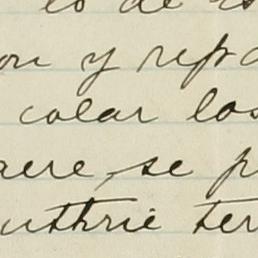 lo de
on y repa
colar los
aere, se p
uthrie ter